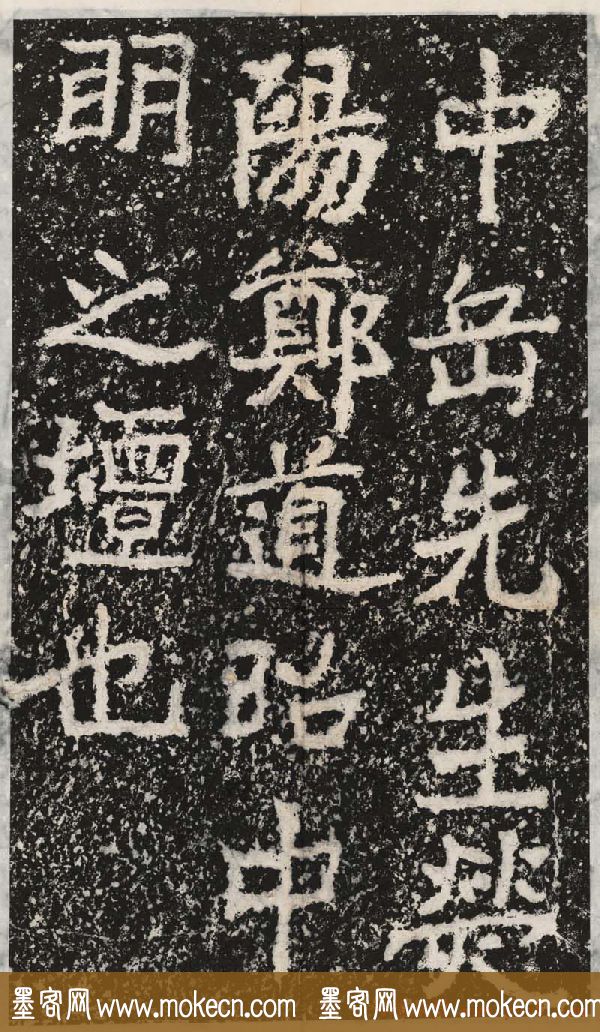 中岳先生荧
陽鄭道昭中
明之壇也
墨客网 www.mokecn.com 墨客网 www.mokecn.com